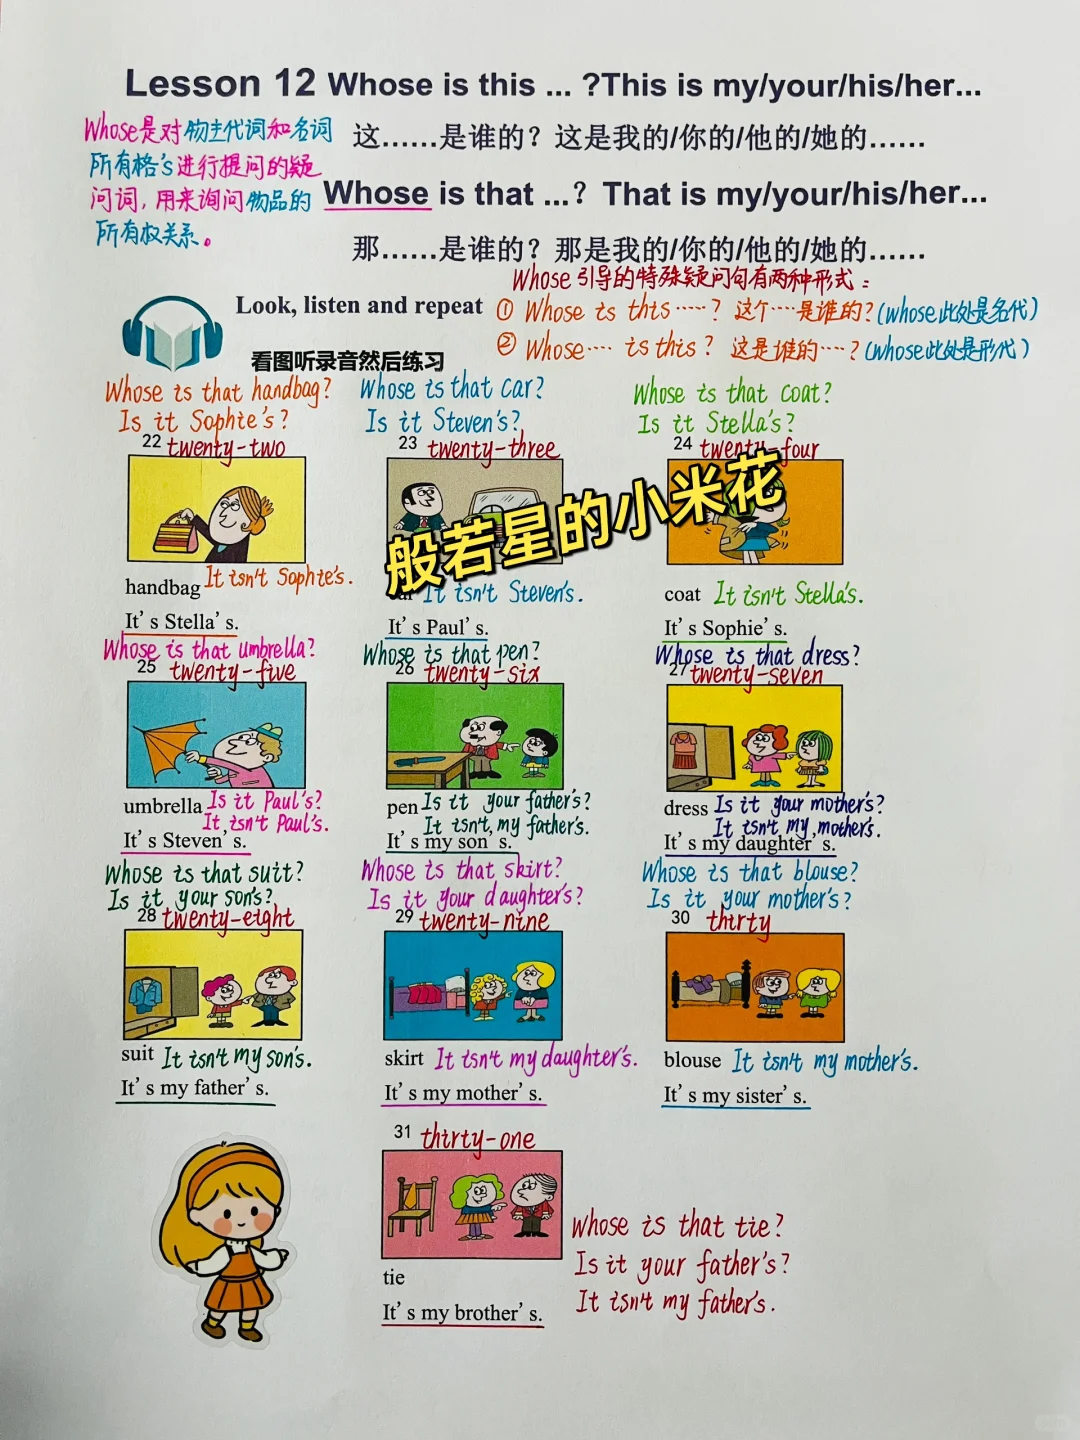 Lesson 12 Whose is this ... ?This is my/your/his/her...
这……是谁的？这是我的/你的/他的/她的……
Whose是对物主代词和名词
所有格's进行提问的疑
问词，用来询问物品的
所有权关系。
Whose is that ...? That is my/your/his/her...
那……是谁的？那是我的/你的/他的/她的……
Whose引导的特殊疑问句有两种形式：
① Whose is this ……? 这个……是谁的?(whose此处是名代)
② Whose…… is this? 这是谁的……?(whose此处是形代)
Look, listen and repeat
看图听录音然后练习
Whose is that handbag?
Is it Sophie's?
22 twenty-two
handbag It isn't Sophie's.
It's Stella's.
Whose is that car?
Is it Steven's?
23 twenty-three
It isn't Steven's.
It's Paul's.
Whose is that coat?
Is it Stella's?
24 twenty-four
coat It isn't Stella's.
It's Sophie's.
般若星的小米花
Whose is that umbrella?
25 twenty-five
umbrella Is it Paul's?
It isn't Paul's.
It's Steven's.
Whose is that pen?
26 twenty-six
pen Is it your father's?
It isn't my father's.
It's my son's.
Whose is that dress?
27 twenty-seven
dress Is it your mother's?
It isn't my mother's.
It's my daughter's.
Whose is that suit?
Is it your son's?
28 twenty-eight
suit It isn't my son's.
It's my father's.
Whose is that skirt?
Is it your daughter's?
29 twenty-nine
skirt It isn't my daughter's.
It's my mother's.
Whose is that blouse?
Is it your mother's?
30 thirty
blouse It isn't my mother's.
It's my sister's.
31 thirty-one
tie
It's my brother's.
Whose is that tie?
Is it your father's?
It isn't my father's.